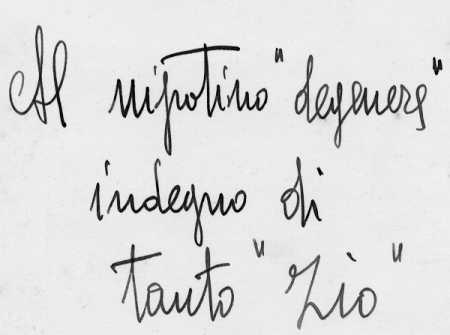 Al nipotino "degenere"
indegno di
tanto "Zio"